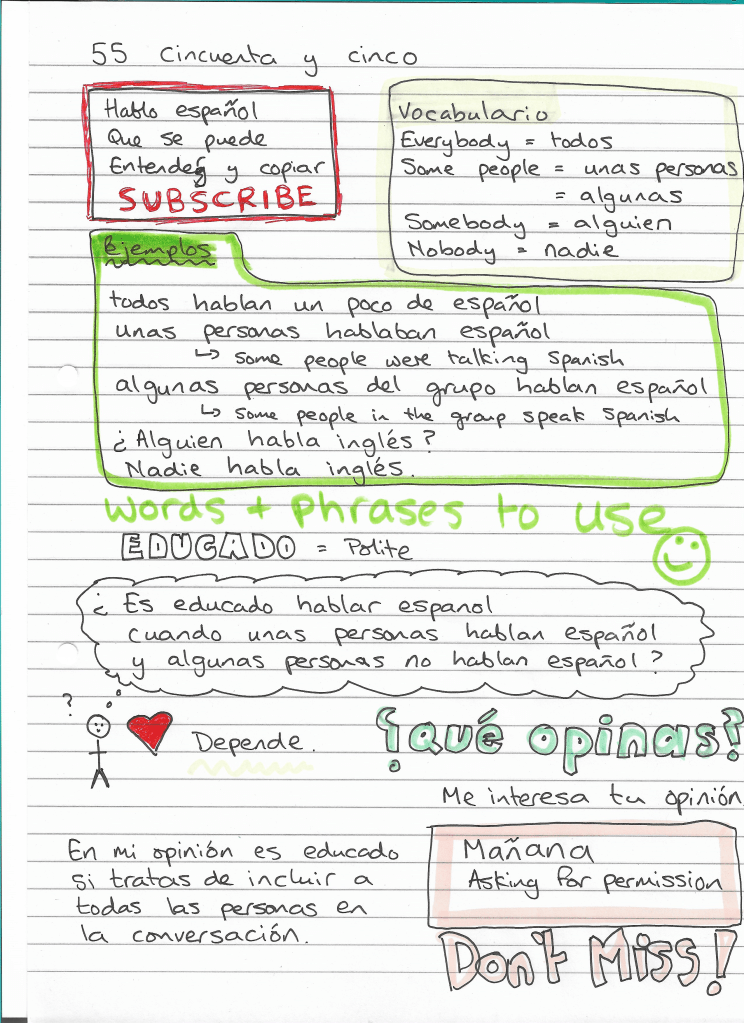 55 Cincuenta y cinco
Hablo español
Que se puede
Entender y copiar
SUBSCRIBE
Vocabulario
Everybody = todos
Some people = unas personas
= algunas
Somebody = alguien
Nobody = nadie
Ejemplos
todos hablan un poco de español
unas personas hablaban español
↳ some people were talking Spanish
algunas personas del grupo hablan español
↳ some people in the group speak Spanish
¿Alguien habla inglés?
Nadie habla inglés.
words + phrases to use
EDUCADO = Polite
¿Es educado hablar espanol
cuando unas personas hablan español
y algunas personas no hablan español?
?
Depende.
¿qué opinas?
Me interesa tu opinión
En mi opinión es educado
si tratas de incluir a
todas las personas en
la conversación.
Mañana
Asking for permission
Don't Miss!